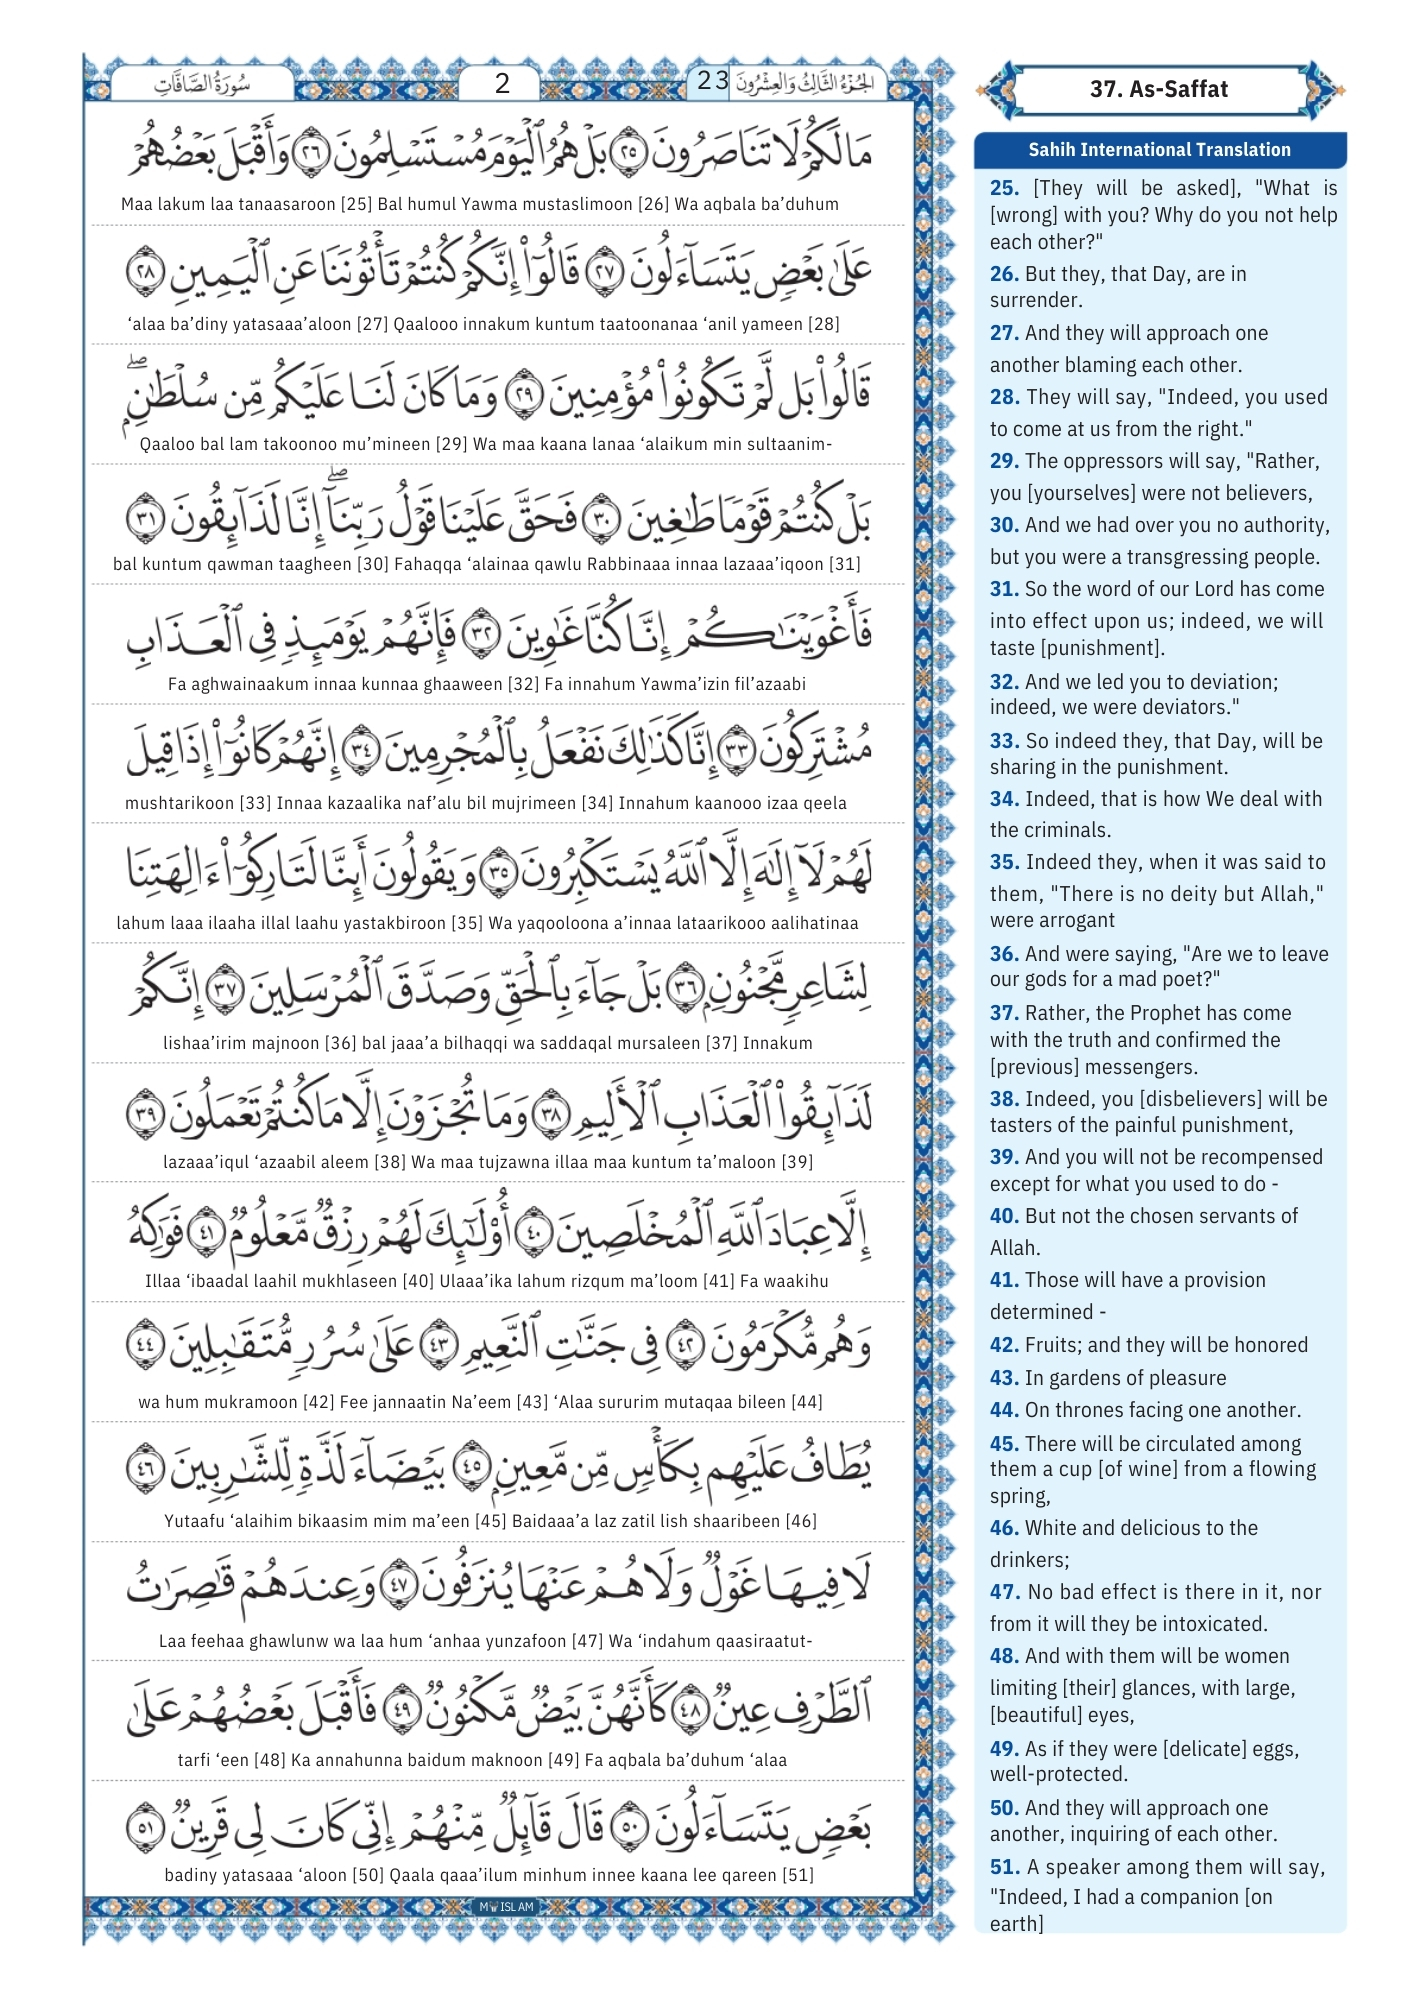 سُورَةُ الصَّافَّاتِ
2
23
الجُزْءُ الثَّالِثُ وَالعِشْرُونَ
مَا لَكُمْ لَا تَنَاصَرُونَ ٢٥ بَلْ هُمُ ٱلْيَوْمَ مُسْتَسْلِمُونَ ٢٦ وَأَقْبَلَ بَعْضُهُمْ
Maa lakum laa tanaasaroon [25] Bal humul Yawma mustaslimoon [26] Wa aqbala ba’duhum
عَلَىٰ بَعْضٍ يَتَسَآءَلُونَ ٢٧ قَالُوٓا۟ إِنَّكُمْ كُنتُمْ تَأْتُونَنَا عَنِ ٱلْيَمِينِ ٢٨
‘alaa ba’diny yatasaaa’aloon [27] Qaalooo innakum kuntum taatoonanaa ‘anil yameen [28]
قَالُوا۟ بَل لَّمْ تَكُونُوا۟ مُؤْمِنِينَ ٢٩ وَمَا كَانَ لَنَا عَلَيْكُم مِّن سُلْطَـٰنٍۭ ۖ
Qaaloo bal lam takoonoo mu’mineen [29] Wa maa kaana lanaa ‘alaikum min sultaanim-
بَلْ كُنتُمْ قَوْمًا طَـٰغِينَ ٣٠ فَحَقَّ عَلَيْنَا قَوْلُ رَبِّنَآ ۖ إِنَّا لَذَآئِقُونَ ٣١
bal kuntum qawman taagheen [30] Fahaqqa ‘alainaa qawlu Rabbinaaa innaa lazaaa’iqoon [31]
فَأَغْوَيْنَـٰكُمْ إِنَّا كُنَّا غَـٰوِينَ ٣٢ فَإِنَّهُمْ يَوْمَئِذٍ فِى ٱلْعَذَابِ
Fa aghwainaakum innaa kunnaa ghaaween [32] Fa innahum Yawma’izin fil’azaabi
مُشْتَرِكُونَ ٣٣ إِنَّا كَذَٰلِكَ نَفْعَلُ بِٱلْمُجْرِمِينَ ٣٤ إِنَّهُمْ كَانُوٓا۟ إِذَا قِيلَ
mushtarikoon [33] Innaa kazaalika naf’alu bil mujrimeen [34] Innahum kaanooo izaa qeela
لَهُمْ لَآ إِلَـٰهَ إِلَّا ٱللَّهُ يَسْتَكْبِرُونَ ٣٥ وَيَقُولُونَ أَئِنَّا لَتَارِكُوٓا۟ ءَالِهَتِنَا
lahum laaa ilaaha illal laahu yastakbiroon [35] Wa yaqooloona a’innaa lataarikooo aalihatinaa
لِشَاعِرٍ مَّجْنُونٍۭ ٣٦ بَلْ جَآءَ بِٱلْحَقِّ وَصَدَّقَ ٱلْمُرْسَلِينَ ٣٧ إِنَّكُمْ
lishaa’irim majnoon [36] bal jaaa’a bilhaqqi wa saddaqal mursaleen [37] Innakum
لَذَآئِقُوا۟ ٱلْعَذَابِ ٱلْأَلِيمِ ٣٨ وَمَا تُجْزَوْنَ إِلَّا مَا كُنتُمْ تَعْمَلُونَ ٣٩
lazaaa’iqul ‘azaabil aleem [38] Wa maa tujzawna illaa maa kuntum ta’maloon [39]
إِلَّا عِبَادَ ٱللَّهِ ٱلْمُخْلَصِينَ ٤٠ أُو۟لَـٰٓئِكَ لَهُمْ رِزْقٌ مَّعْلُومٌ ٤١ فَوَٰكِهُ
Illaa ‘ibaadal laahil mukhlaseen [40] Ulaaa’ika lahum rizqum ma’loom [41] Fa waakihu
وَهُم مُّكْرَمُونَ ٤٢ فِى جَنَّـٰتِ ٱلنَّعِيمِ ٤٣ عَلَىٰ سُرُرٍ مُّتَقَـٰبِلِينَ ٤٤
wa hum mukramoon [42] Fee jannaatin Na’eem [43] ‘Alaa sururim mutaqaa bileen [44]
يُطَافُ عَلَيْهِم بِكَأْسٍ مِّن مَّعِينٍۭ ٤٥ بَيْضَآءَ لَذَّةٍ لِّلشَّـٰرِبِينَ ٤٦
Yutaafu ‘alaihim bikaasim mim ma’een [45] Baidaaa’a laz zatil lish shaaribeen [46]
لَا فِيهَا غَوْلٌ وَلَا هُمْ عَنْهَا يُنزَفُونَ ٤٧ وَعِندَهُمْ قَـٰصِرَٰتُ
Laa feehaa ghawlunw wa laa hum ‘anhaa yunzafoon [47] Wa ‘indahum qaasiraatut-
ٱلطَّرْفِ عِينٌ ٤٨ كَأَنَّهُنَّ بَيْضٌ مَّكْنُونٌ ٤٩ فَأَقْبَلَ بَعْضُهُمْ عَلَىٰ
tarfi ‘een [48] Ka annahunna baidum maknoon [49] Fa aqbala ba’duhum ‘alaa
بَعْضٍ يَتَسَآءَلُونَ ٥٠ قَالَ قَآئِلٌ مِّنْهُمْ إِنِّى كَانَ لِى قَرِينٌ ٥١
badiny yatasaaa ‘aloon [50] Qaala qaaa’ilum minhum innee kaana lee qareen [51]
37. As-Saffat
Sahih International Translation
25. [They will be asked], "What is
[wrong] with you? Why do you not help
each other?"
26. But they, that Day, are in
surrender.
27. And they will approach one
another blaming each other.
28. They will say, "Indeed, you used
to come at us from the right."
29. The oppressors will say, "Rather,
you [yourselves] were not believers,
30. And we had over you no authority,
but you were a transgressing people.
31. So the word of our Lord has come
into effect upon us; indeed, we will
taste [punishment].
32. And we led you to deviation;
indeed, we were deviators."
33. So indeed they, that Day, will be
sharing in the punishment.
34. Indeed, that is how We deal with
the criminals.
35. Indeed they, when it was said to
them, "There is no deity but Allah,"
were arrogant
36. And were saying, "Are we to leave
our gods for a mad poet?"
37. Rather, the Prophet has come
with the truth and confirmed the
[previous] messengers.
38. Indeed, you [disbelievers] will be
tasters of the painful punishment,
39. And you will not be recompensed
except for what you used to do -
40. But not the chosen servants of
Allah.
41. Those will have a provision
determined -
42. Fruits; and they will be honored
43. In gardens of pleasure
44. On thrones facing one another.
45. There will be circulated among
them a cup [of wine] from a flowing
spring,
46. White and delicious to the
drinkers;
47. No bad effect is there in it, nor
from it will they be intoxicated.
48. And with them will be women
limiting [their] glances, with large,
[beautiful] eyes,
49. As if they were [delicate] eggs,
well-protected.
50. And they will approach one
another, inquiring of each other.
51. A speaker among them will say,
"Indeed, I had a companion [on
earth]